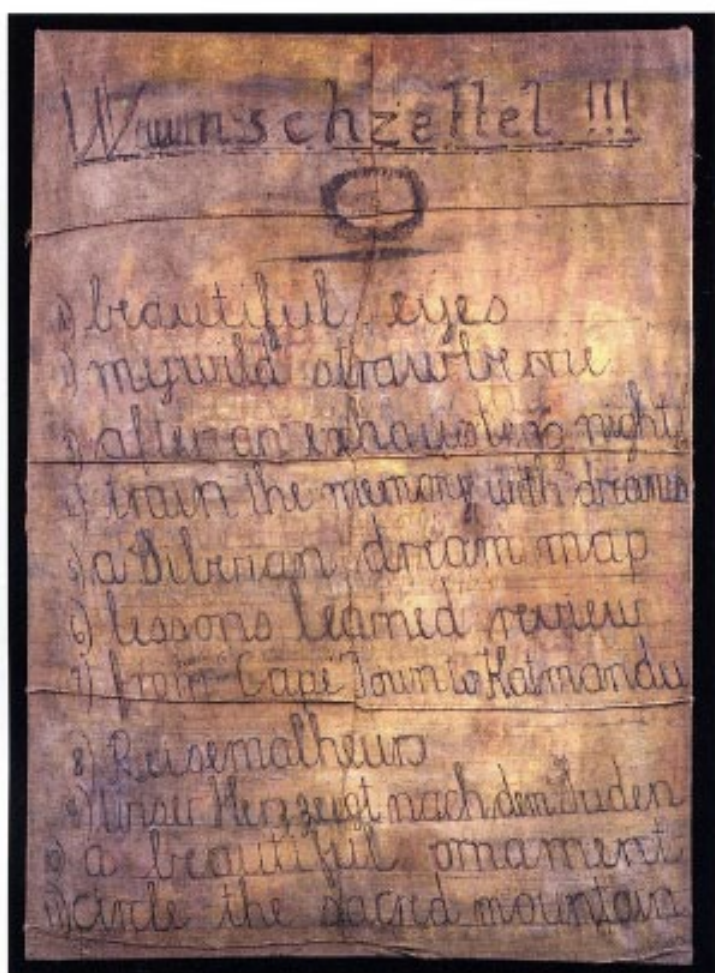 Wuunschzettel !!!
1) beautiful eyes
2) my wild strawberrie
3) after an exhausting night
4) train the memory with dreams
5) a Siberian dream map
6) lessons learned review
7) from Cape Town to Katmandu
8) Reisemalheurs
9) Unser Herz zeigt nach dem Süden
10) a beautiful ornament
11) circle the sacred mountain